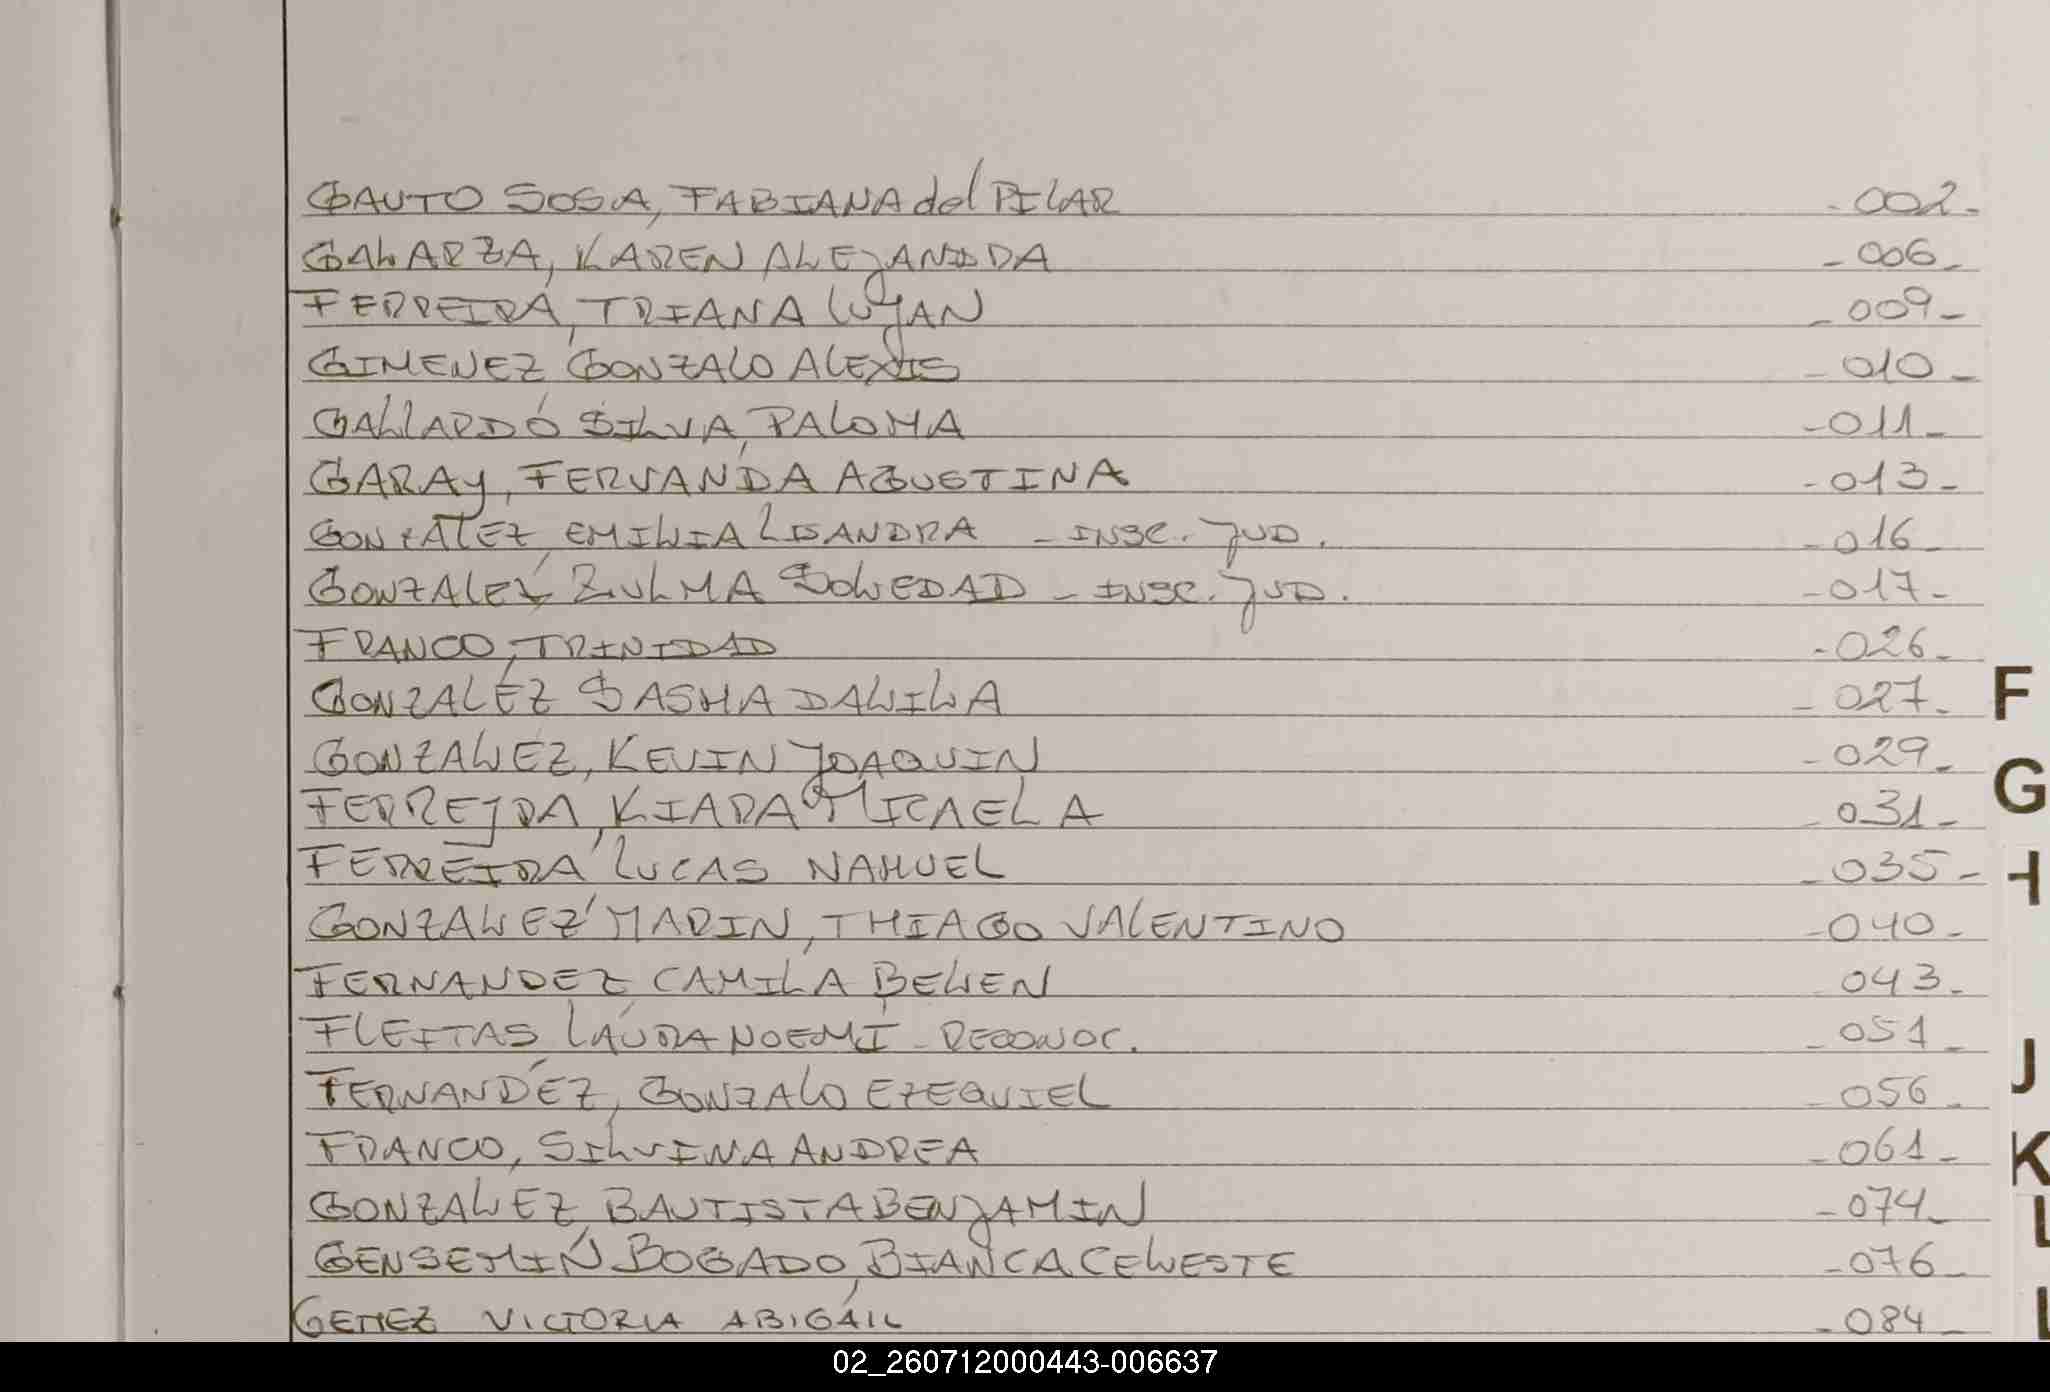 GAUTO SOSA, FABIANA del PILAR -002-
GALARZA, KAREN ALEJANDDA -006-
FERREIRA, TRIANA LUJAN -009-
GIMENEZ GONZALO ALEXIS -010-
GALLARDO SILVA, PALOMA -011-
GARAY, FERNANDA AGUSTINA -013-
GONZALEZ, EMILIA LISANDRA - INSC. JUD. -016-
GONZALEZ, ZULMA SOLEDAD - INSC. JUD. -017-
FRANCO, TRINIDAD -026-
GONZALEZ SASHA DALILA -027-
GONZALEZ, KEVIN JOAQUIN -029-
FERREIRA, KIARA MICAELA -031-
FERREIRA LUCAS NAHUEL -035-
GONZALEZ MARIN, THIAGO VALENTINO -040-
FERNANDEZ CAMILA BELEN 043-
FLEITAS LAURA NOEMI - RECONOC. -051-
FERNANDEZ, GONZALO EZEQUIEL -056-
FRANCO, SILVINA ANDREA -061-
GONZALEZ, BAUTISTA BENJAMIN -074-
GENSEMIN BOGADO, BIANCA CELESTE -076-
VICTORIA ABIGAIL -084-
F
G
H
J
K
L
02_260712000443-006637